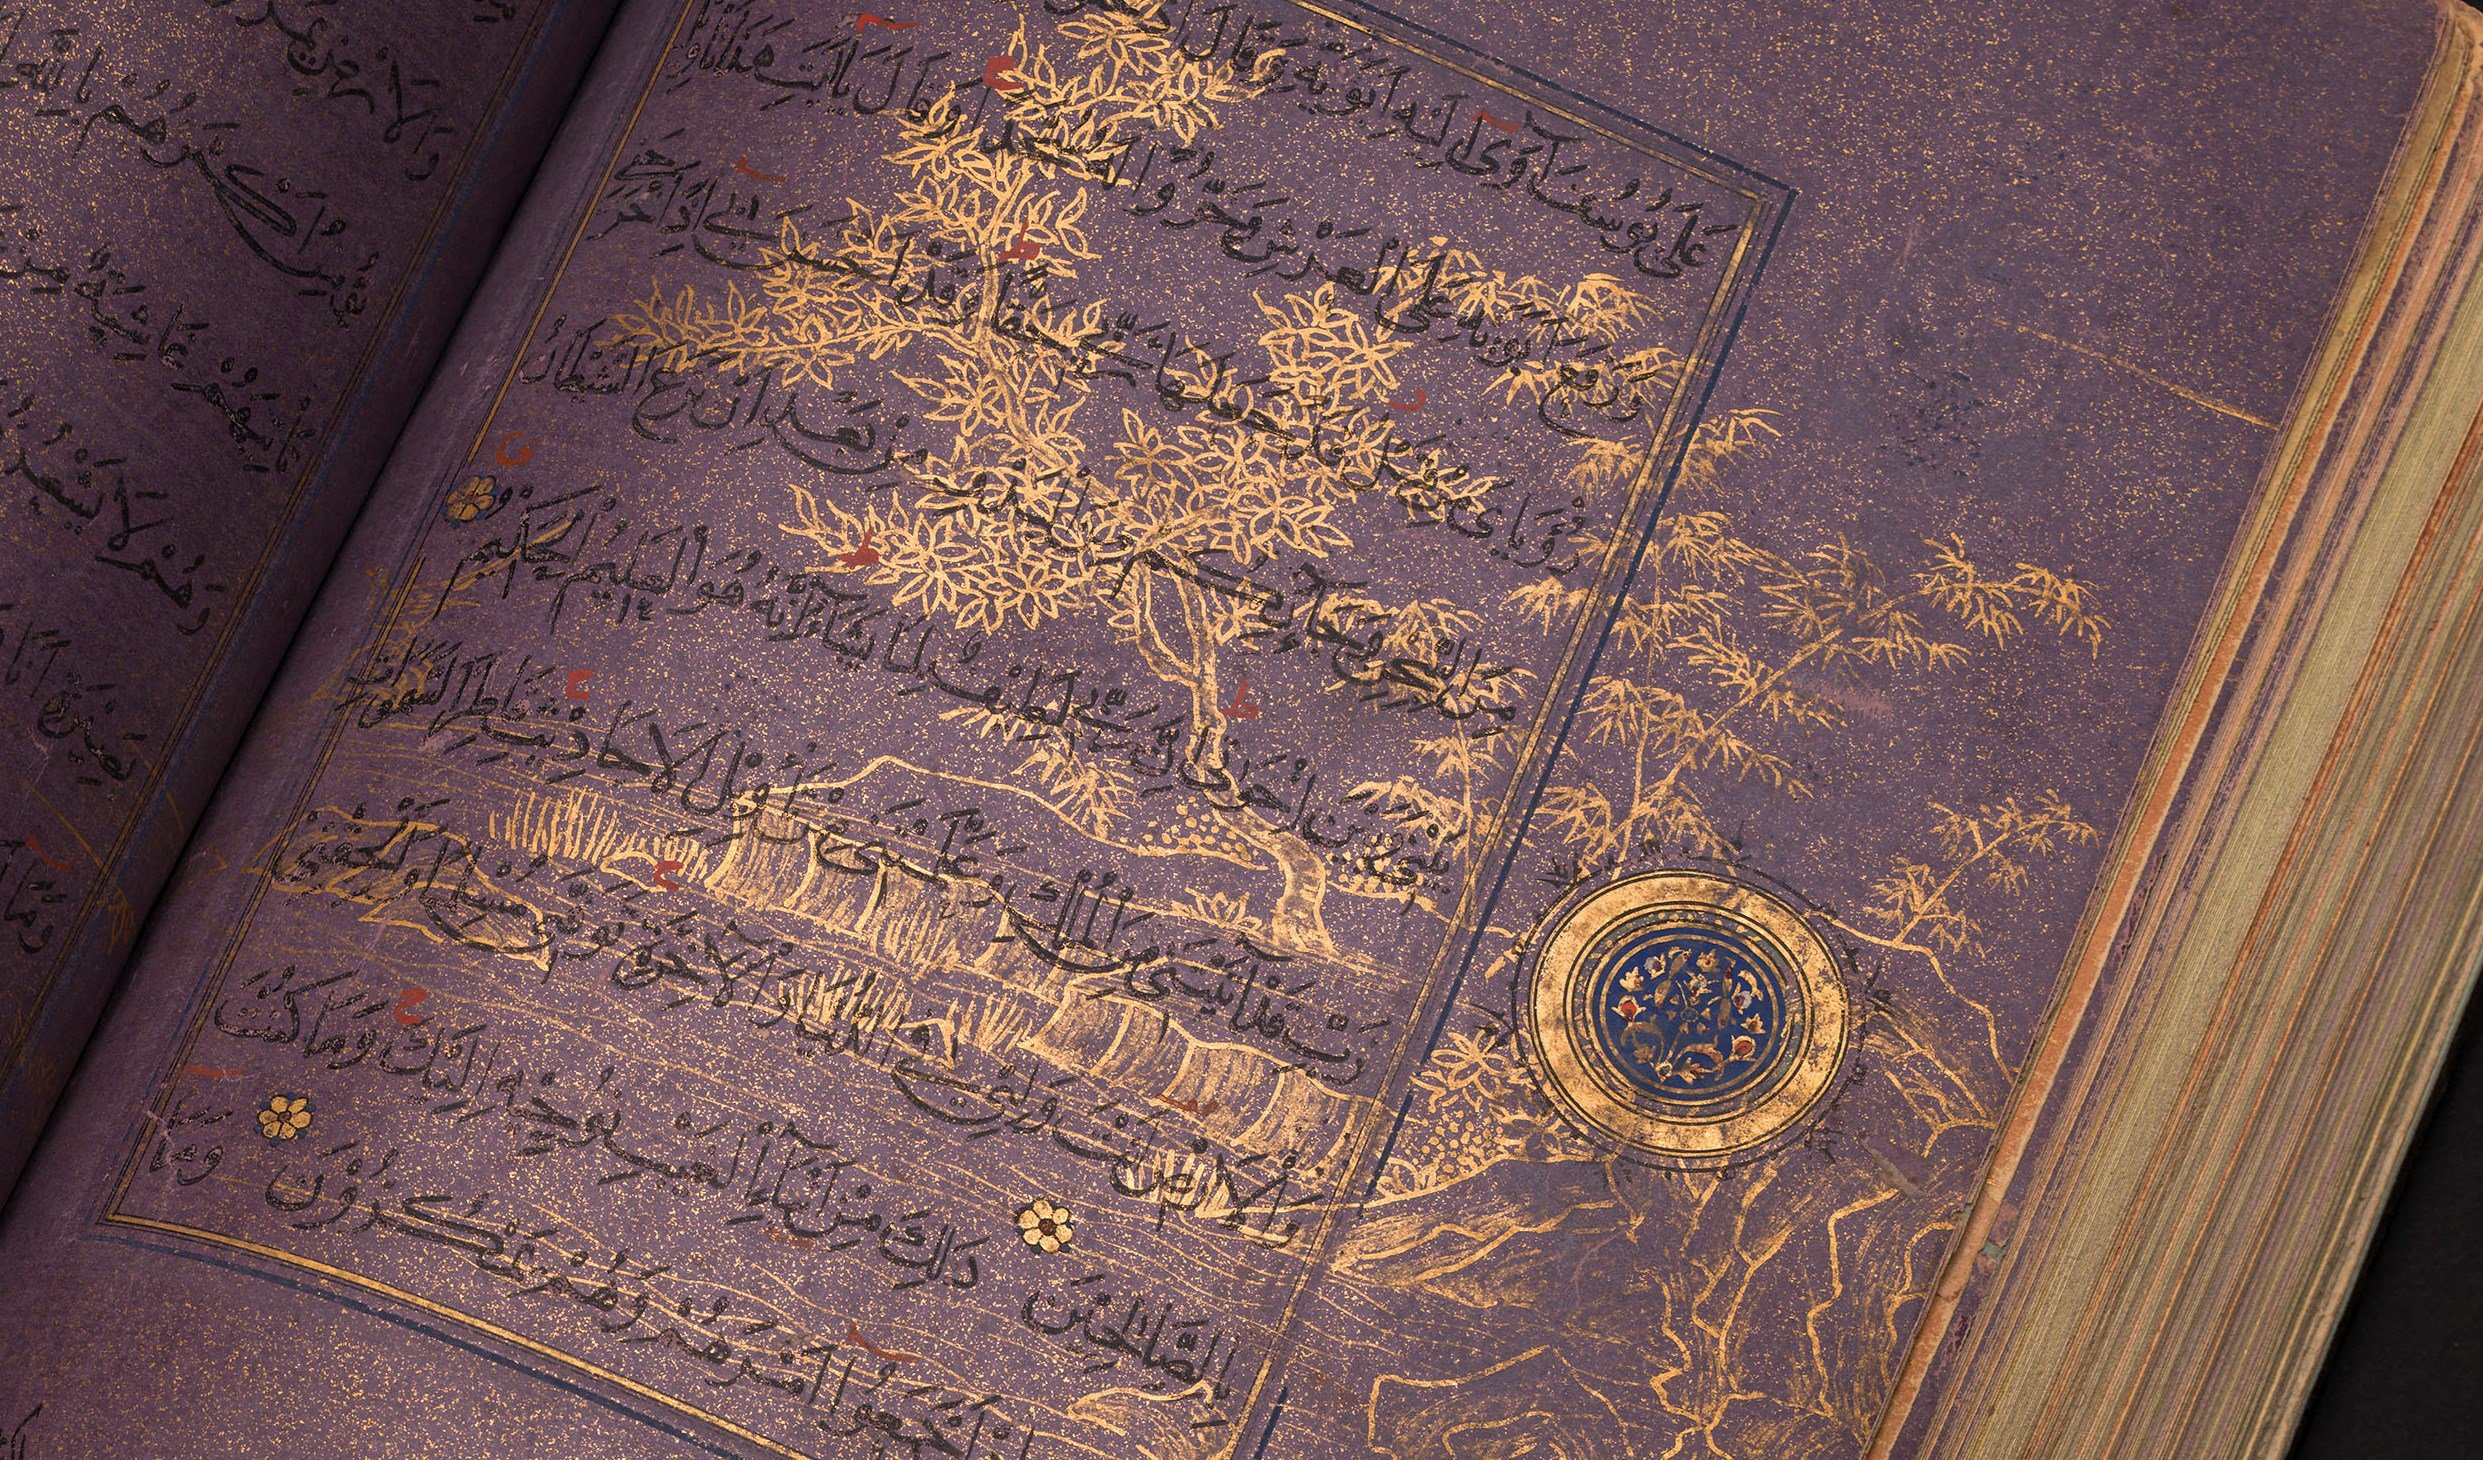 وَالْأَرْضِ يَمُرُّ
يُؤْمِنُ أَكْثَرُهُمْ بِاللَّهِ
تَأْتِيَهُمْ غَاشِيَةٌ مِنْ
وَهُمْ لَا يَشْعُرُ
بَصِيرَةٍ أَنَا
وَمَا
عَلَى يُوسُفَ آوَى إِلَيْهِ أَبَوَيْهِ وَقَالَ
وَرَفَعَ أَبَوَيْهِ عَلَى الْعَرْشِ وَخَرُّوا لَهُ سُجَّدًا وَقَالَ يَا أَبَتِ هَذَا تَأْوِ
رُؤْيَايَ مِنْ قَبْلُ قَدْ جَعَلَهَا رَبِّي حَقًّا وَقَدْ أَحْسَنَ بِي إِذْ أَخْرَجَنِي
مِنَ السِّجْنِ وَجَاءَ بِكُمْ مِنَ الْبَدْوِ مِنْ بَعْدِ أَنْ نَزَغَ الشَّيْطَانُ
بَيْنِي وَبَيْنَ إِخْوَتِي إِنَّ رَبِّي لَطِيفٌ لِمَا يَشَاءُ إِنَّهُ هُوَ الْعَلِيمُ الْحَكِيمُ
رَبِّ قَدْ آتَيْتَنِي مِنَ الْمُلْكِ وَعَلَّمْتَنِي مِنْ تَأْوِيلِ الْأَحَادِيثِ فَاطِرَ السَّمَوَاتِ
وَالْأَرْضِ أَنْتَ وَلِيِّي فِي الدُّنْيَا وَالْآخِرَةِ تَوَفَّنِي مُسْلِمًا وَأَلْحِقْنِي
بِالصَّالِحِينَ ذَلِكَ مِنْ أَنْبَاءِ الْغَيْبِ نُوحِيهِ إِلَيْكَ وَمَا كُنْتَ
إِذْ أَجْمَعُوا أَمْرَهُمْ وَهُمْ يَمْكُرُونَ وَمَا